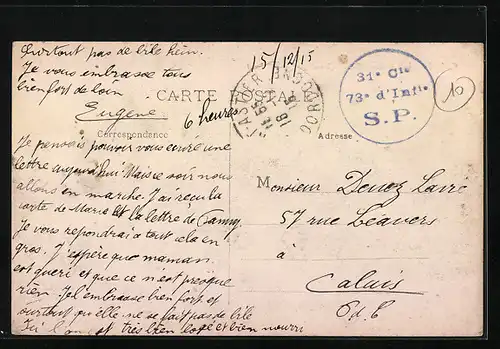 Surtout pas de bile hein.
Je vous embrasse tous
bien fort de loin
Eugène
15/12/15
6 heures
CARTE POSTALE
Correspondance
Adresse
31e Cie
73e d'Infie
S.P.
10
Je pensais pouvoir vous écrire une
lettre aujourd'hui Mais ce soir nous
allons en marche. J'ai reçu la
carte de Marie et la lettre de
Je vous repondrai a tout cela en
gros. J'espère que maman
est gueri et que ce n'est presque
rien. Je l'embrasse bien fort et
surtout qu'elle ne se fasse pas de bile
Ici on est très bien logé et bien nourri
Monsieur
57 rue
à
Calais
P d C